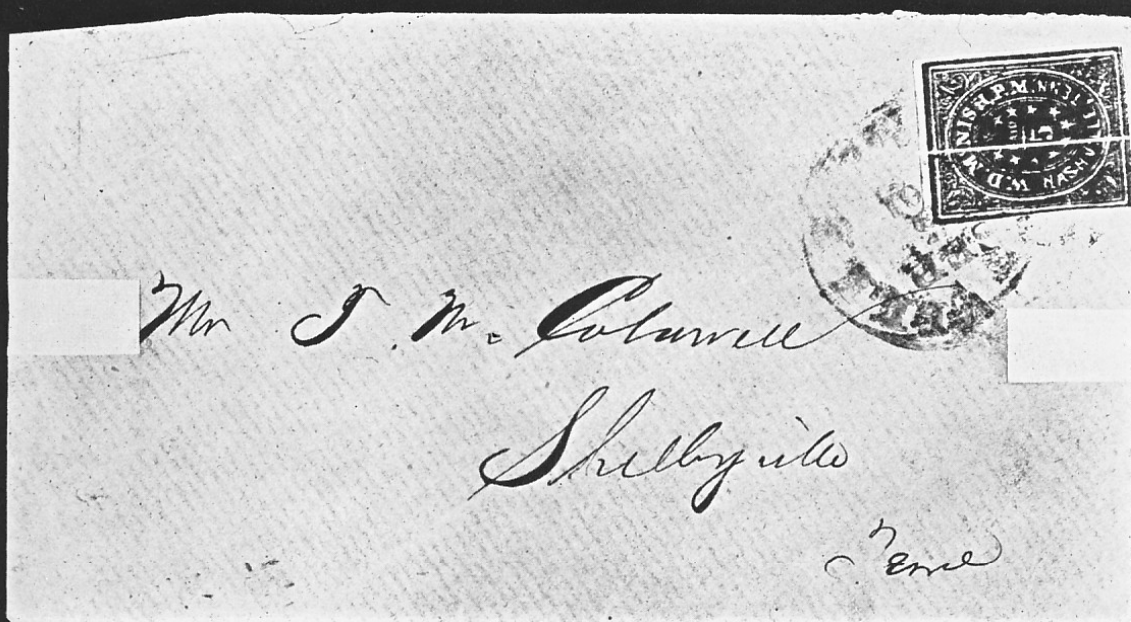 W.D. McNISH. P.M. NASHVILLE TENN.
PAID
5
Mr T. M. Coldwell
Shelbyville
Tenne